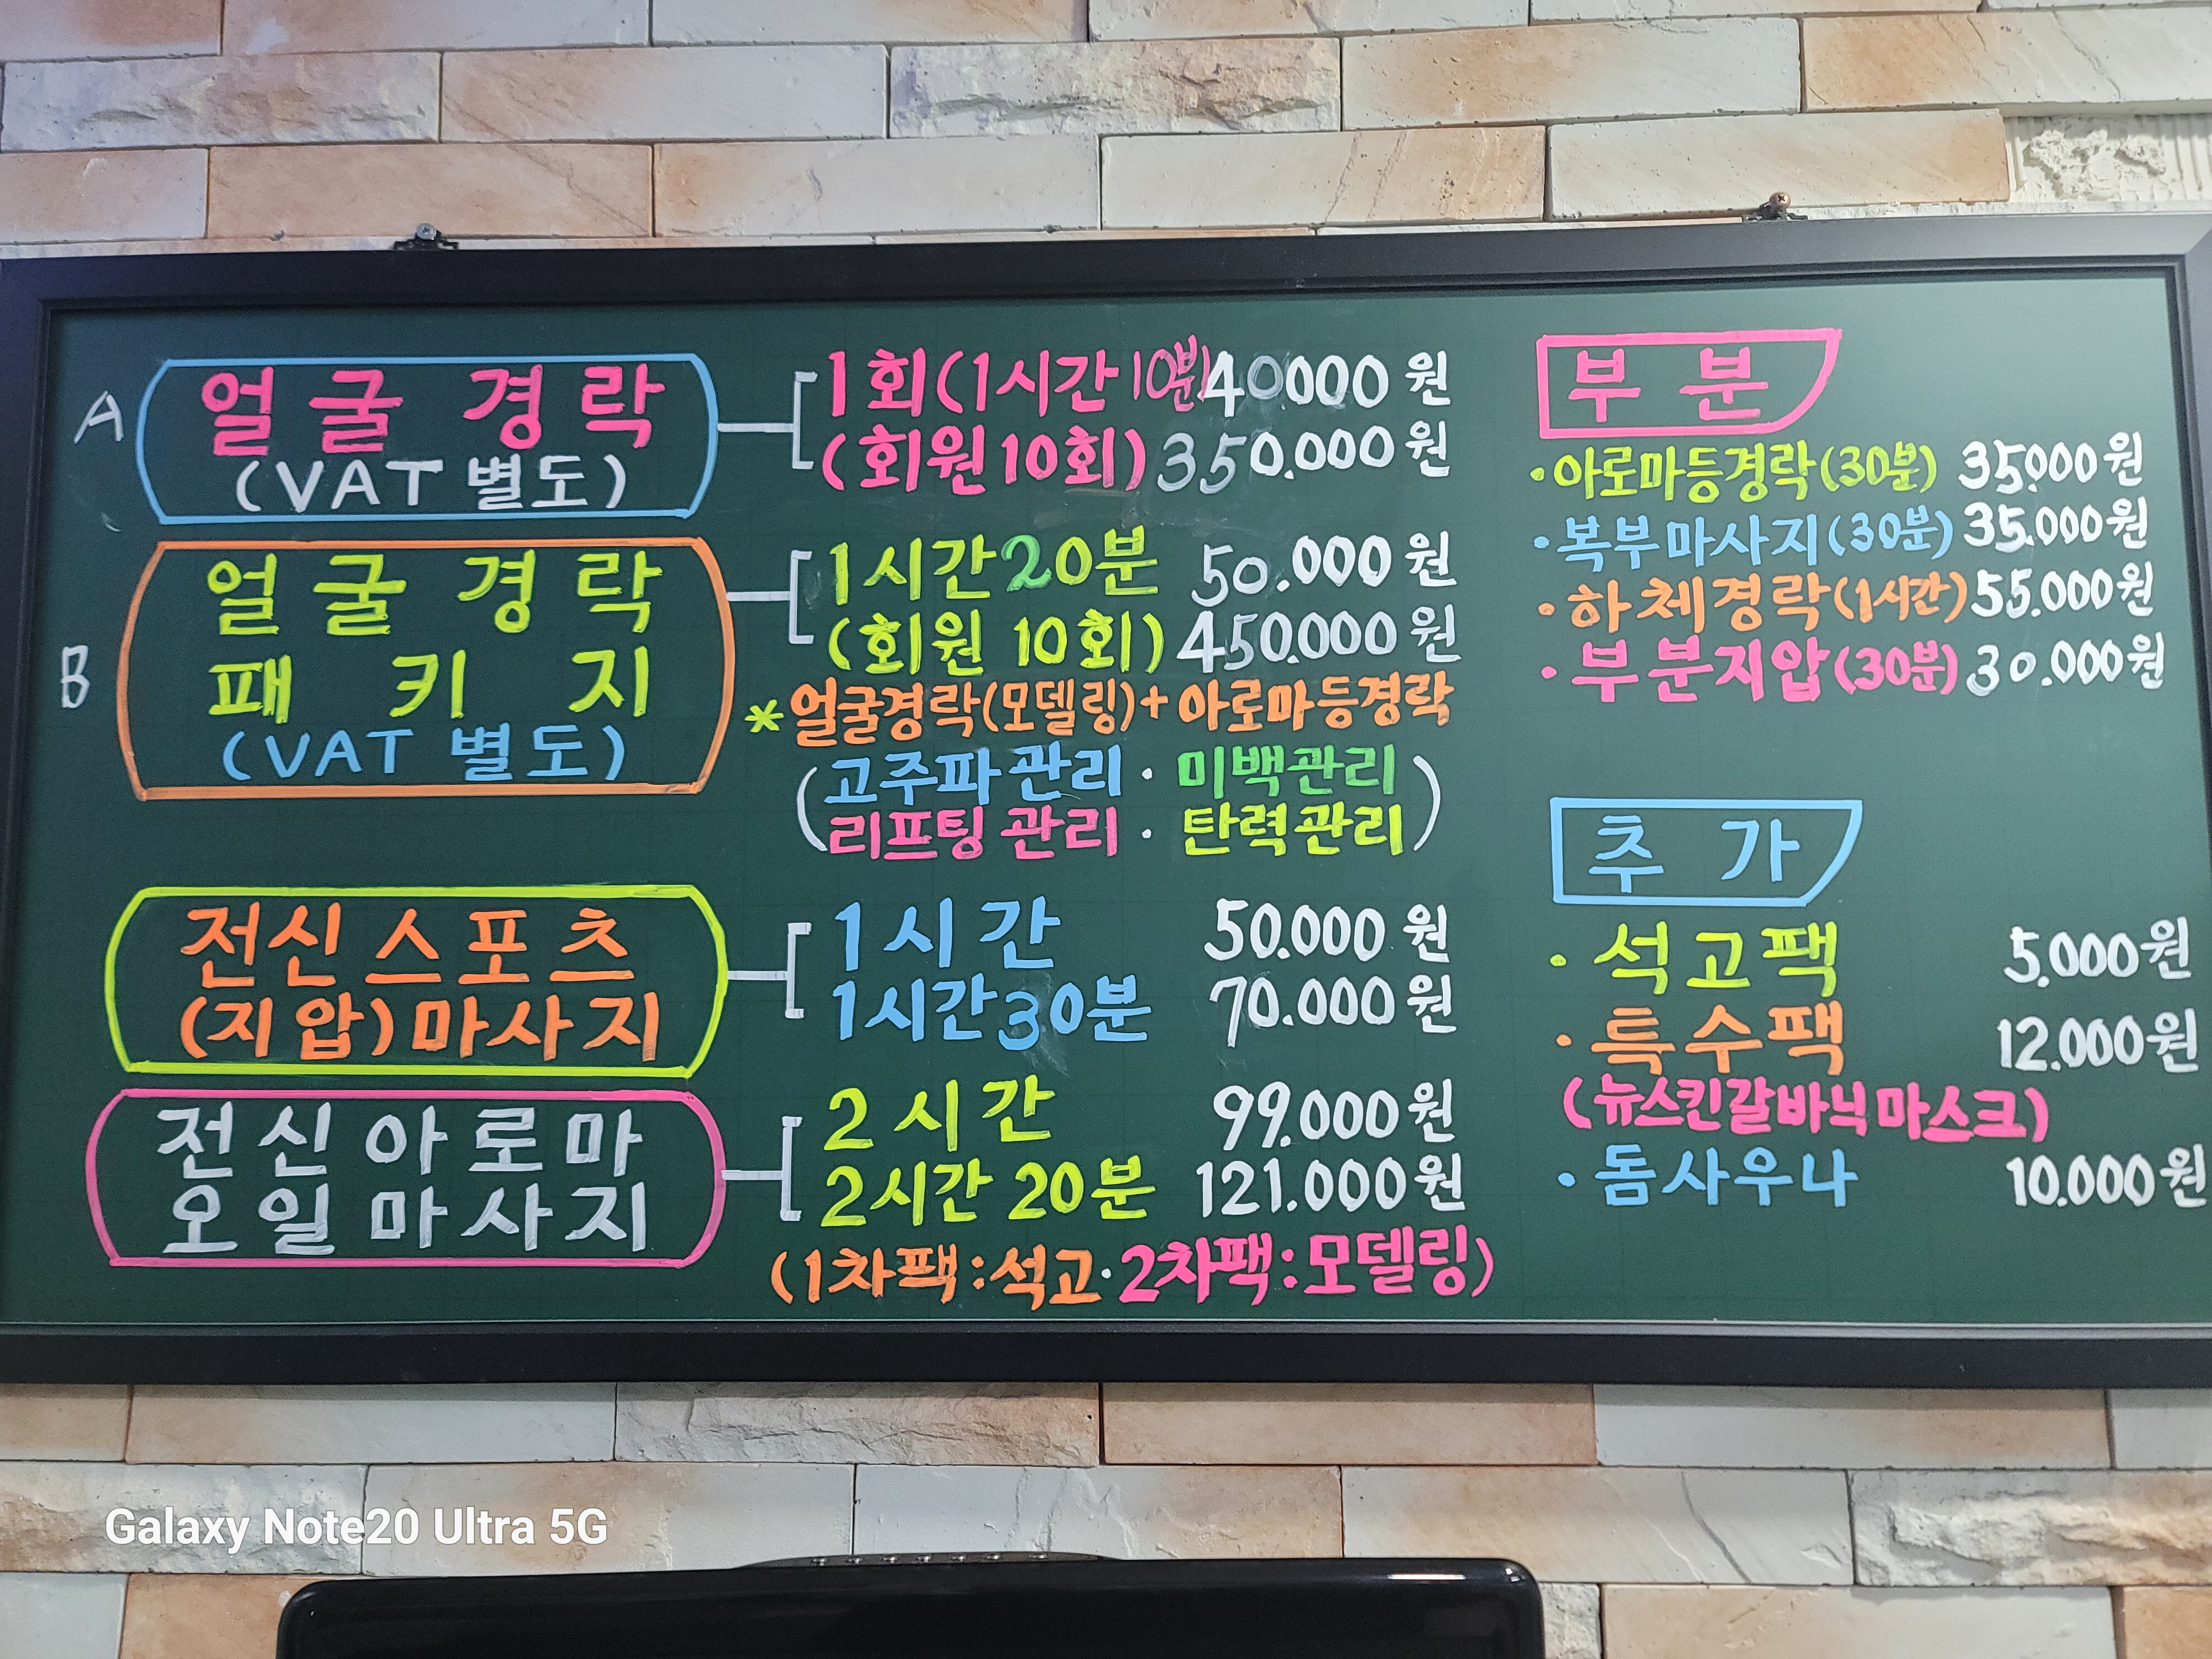 A
얼굴 경락
(VAT 별도)
1회(1시간 10분) 40000원
(회원10회) 350.000원
B
얼굴 경락
패키지
(VAT 별도)
1시간20분 50.000원
(회원 10회) 450.000원
*얼굴경락(모델링)+아로마등경락
(고주파관리·미백관리
리프팅관리·탄력관리)
전신스포츠
(지압)마사지
1시간 50.000원
1시간30분 70.000원
전신아로마
오일마사지
2시간 99.000원
2시간 20분 121.000원
(1차팩:석고·2차팩:모델링)
부분
·아로마등경락(30분) 35.000원
·복부마사지(30분) 35.000원
·하체경락(1시간) 55.000원
·부분지압(30분) 30.000원
추가
·석고팩 5.000원
·특수팩 12.000원
(뉴스킨갈바닉마스크)
·돔사우나 10.000원
Galaxy Note20 Ultra 5G